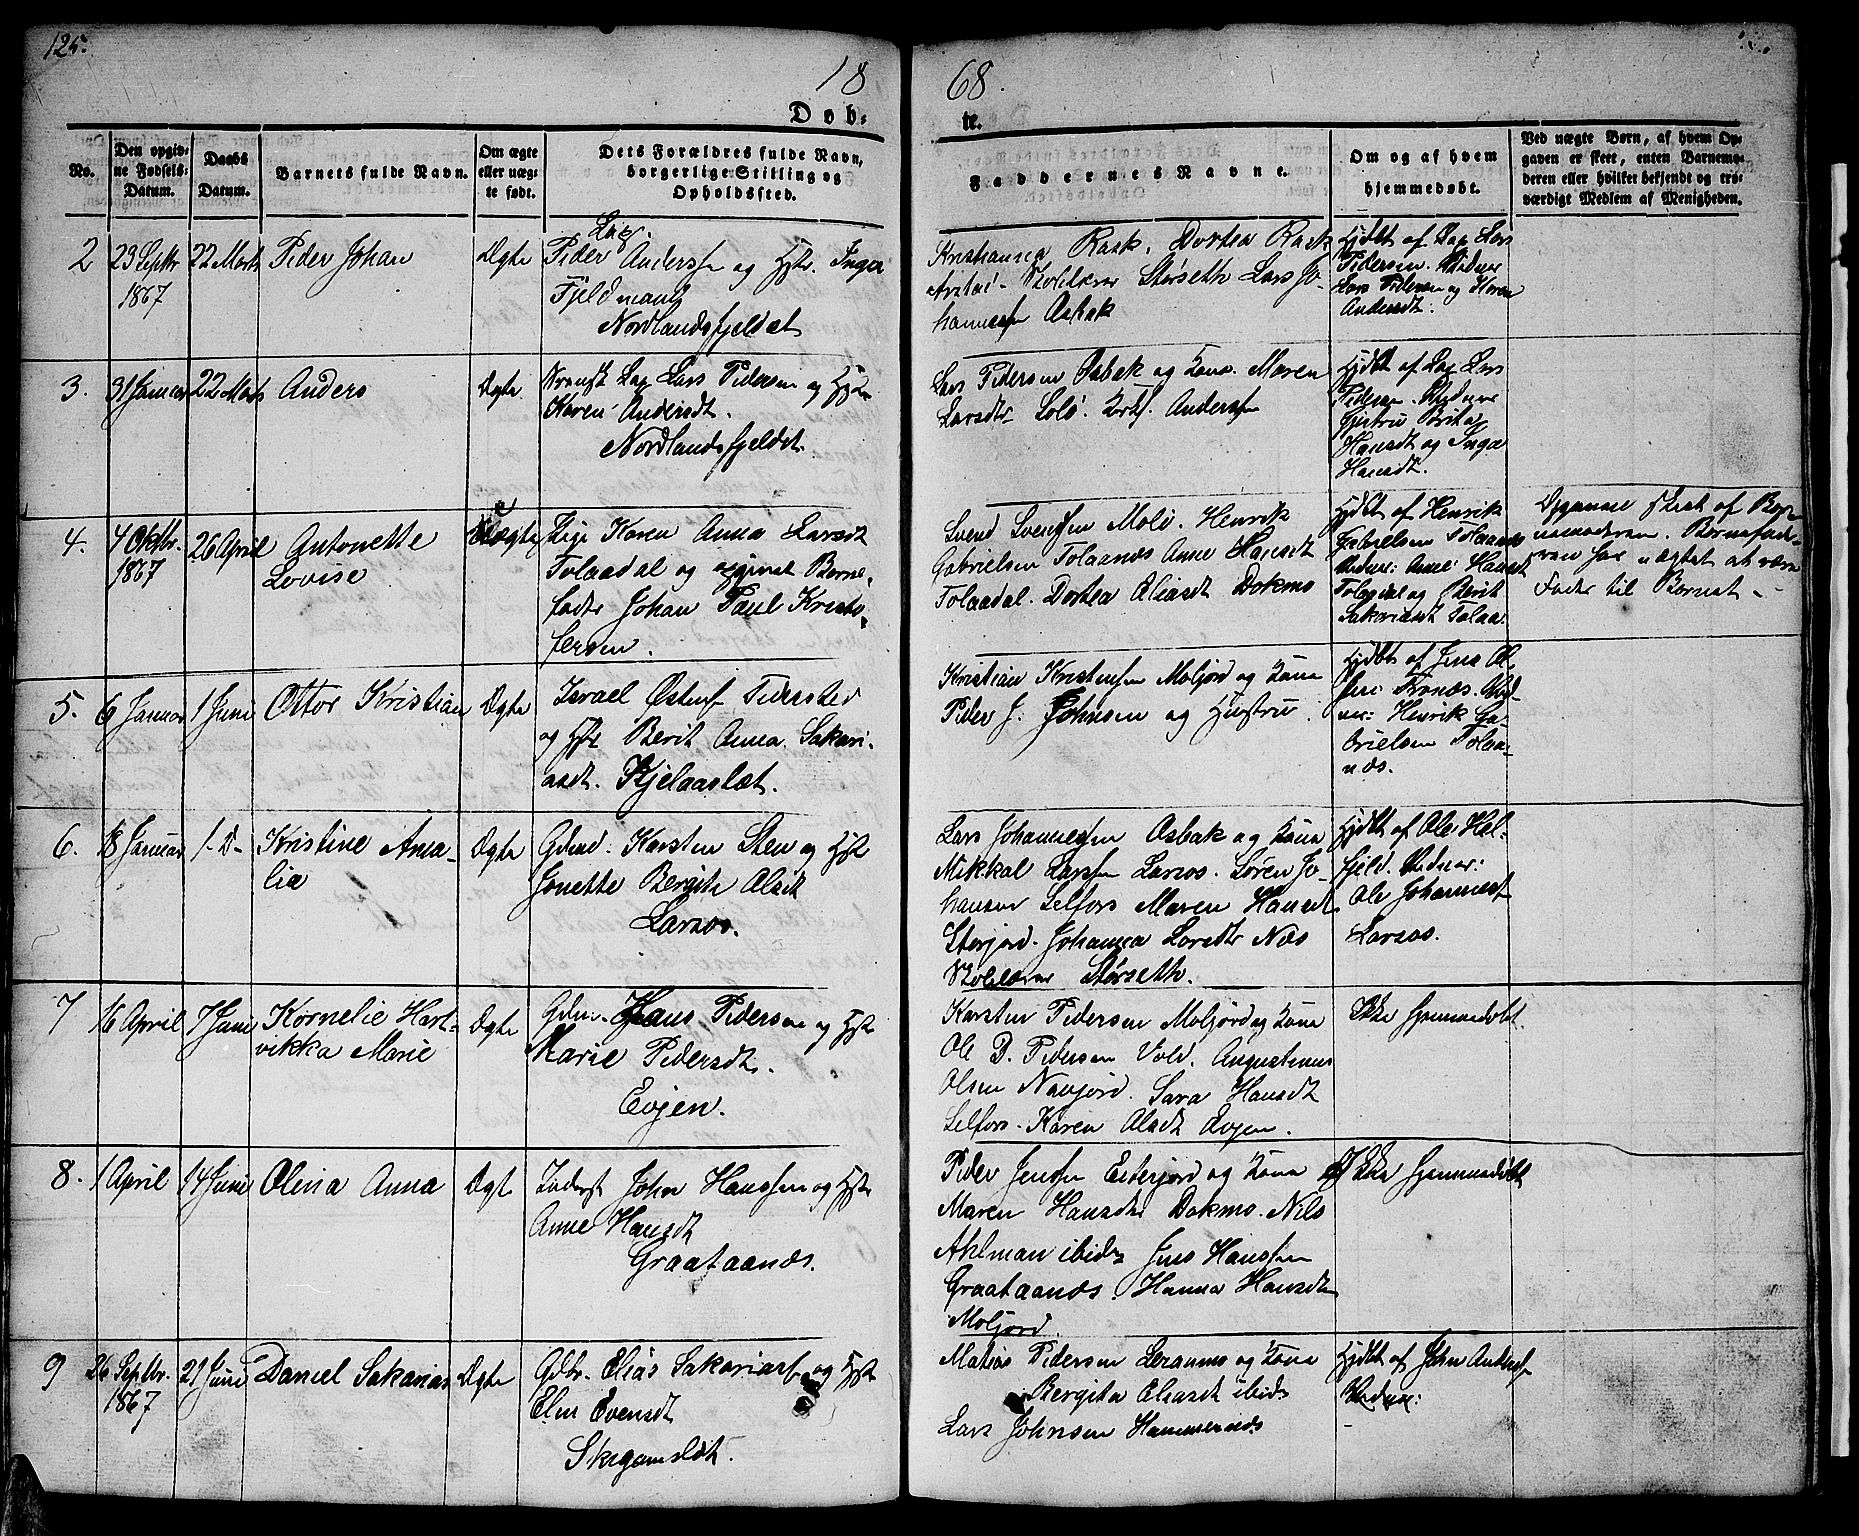 125.
18
68.
Døb-
te.
No.
Den opgiv-
ne Fødsels-
Datum.
Daabs
Datum.
Barnets fulde Navn.
Om ægte
eller uæg-
te født.
Dets Forældres fulde Navn,
borgerlige Stilling og
Opholdssted.
Faddernes Navne.
Om og af hvem
hjemmedøbt.
Ved uægte Børn, af hvem Op-
gaven er skeet, enten Barnemo-
deren eller hvilket bekjendt og tro-
værdigt Medlem af Menigheden.
2
23 Septbr
1867
22 Marts
Peder Johan
Ægte
Lap.
Peder Anderss. og Hst. Inger
Fjeldmand
Nordlandsfjeldet
Kristianna Rask. Dortea Rask
Storseth Lars Jo-
hannessen Osbak
Hjdbt af Lap Lars
Pedersen. Vidner
Lars Pedersen og Karen
Andersdt.
3.
31 Januar
22 Marts
Anders
Ægte
Lap Lars Pedersen og Hst.
Karen Andersdt.
Nordlandsfjeldet.
Lars Pedersen Osbak og Kone. Maren
Larsdtr Anderssen
Hjdbt af Lap Lars
Pedersen. Vidner
Berit
Hansdt og Inga
Hansdt.
4.
4 Oktbr.
1867
26 April
Antonette
Lovise
Uægte
Pige Karen Anna Larsdt
Tolaadal og opgivet Barne-
fader Johan Paul Kristo-
fersen.
Svend Svendsen Molid. Henrik
Gabrielsen Tolaanæs Anne Hansdt
Tolaadal. Dortea Eliasdt Dokmo
Hjdbt af Henrik
Gabrielsen Tolaanæs
Vidner: Anne Hansdt
Tolaadal og Berit
Sakariasdt Tolaa:
Opgaven skeet af Bar-
nemoderen. Barnefade-
ren har nægtet at være
Fader til Barnet.
5.
6 Januar
1 Juni
Ottor Kristian
Ægte
Israel Østens. Pedersted
og Hst. Berit Anna Sakari-
asdt. Kjelaaslæt.
Kristian Kristensen Moljord og Kone
Peder J. Johnsen og Hustru.
Hjdbt af Jens Ol-
sen Tronæs. Vid-
ner: Henrik Ga-
brielsen Tolaa-
næs.
6.
18 Januar
1 - D -
Kristine Ama-
lia
Ægte
Gdmd. Karsten Sten og Hst
Jonette Bergite Olsdt
Larsos.
Lars Johannessen Osbak og Kone
Mikkal Larssen Larsos. Søren Jo-
hansen Selfors Maren Hansdt
Storjord. Johanna Larsdtr Næs
Storseth.
Hjdbt af Ole Hel-
fjeld. Vidner:
Ole Johanness.
Larsos.
7
16 April
7 Juni
Kornelie Hart-
vikka Marie
Ægte
Gdm. Hans Pedersen og Hst
Marie Pedersdt.
Evjen.
Karsten Pedersen Moljord og Kone
Ole P. Pedersen Vold. Augustinus
Olsen Navjord. Sara Hansdt
Selfors. Karen Olsdt Evjen.
Ikke hjemmedøbt.
8.
1 April
14 Juni
Olina Anna
Ægt
Inderst John Hanssen og Hst
Anne Hansdt
Graataanæs.
Peder Jenssen Eiterjord og Kone
Maren Hansdtr Dokmo. Nils
Ahlman ibidm Jens Hanssen
Graataanæs. Hanna Hansdtr
Moljord.
Ikke hjemmedøbt
9
26 Septbr.
1867
21 Juni
Daniel Sakarias
Ægte
Gdbr. Elias Sakarias. og Hst
Elen Evensdt
Matias Pedersen Leranmo og Kone
Bergita Eliasdt ibid
Lars Johnsen Hammernæs
Hjdbt af John Anderss.
Vidner: